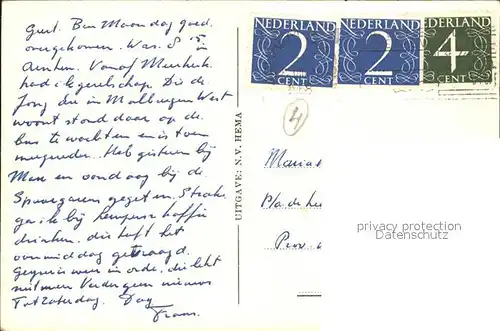 Geert. Ben Maandag goed
overgekomen. Was 8 15 in
Arnhem. Vanaf
had ik gezelschap. Die de
Jong die in Malburgen West
woont stond daar op de
bus te wachten en is toen
meegereden. Heb gisteren bij
Max en vandaag bij de
gegeten. Straks
ga ik bij koffie
drinken. die heeft het
vanmiddag gevraagd.
weer in orde, die
niet meer. Verder geen nieuws
Tot Zaterdag. Dag
Frans.
UITGAVE: N.V. HEMA
NEDERLAND
2
CENT
NEDERLAND
2
CENT
NEDERLAND
4
CENT
4
P/a de
Prov.
privacy protection
Datenschutz